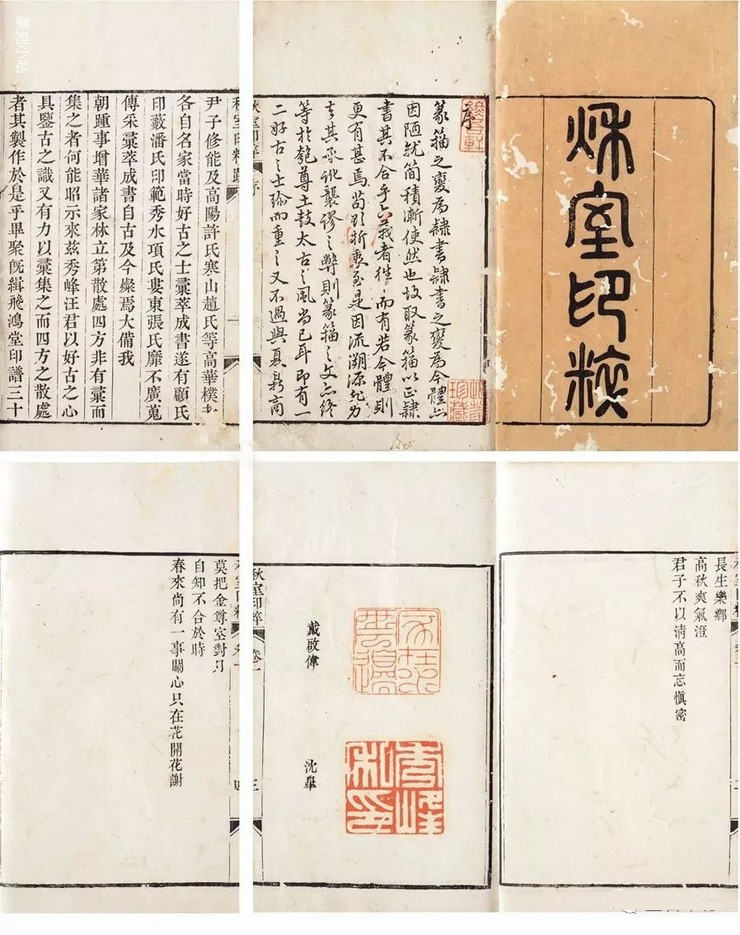 秋室印粹
序
篆籀之變為隸書隸書之變為今體亦
因陋就簡積漸使然也故取篆籀以正隸
書其不合乎六義者 而有若今體則
更有甚焉苟 折衷至是因流溯源
去其承訛襲謬之弊則篆籀之文亦終
等於匏尊土鼓太古之風尚已耳即有一
二好古之士珍而重之又不過與夏鼎商
珍藏
秋室印粹 序
秋室印粹
尹子修能及高陽許氏寒山趙氏等高華樸
各自名家當時好古之士彙萃成書遂有顧氏
印藪潘氏印範秀水項氏婁東張氏靡不廣蒐
傳采彙萃成書自古及今燦焉大備我
朝踵事增華諸家林立第散處四方非有彙而
集之者何能昭示來茲秀峰汪君以好古之心
具鑒古之識又有力以彙集之而四方之散處
者其製作於是乎畢聚旣緝飛鴻堂印譜三十
篆刻小站
長生樂鄉
高秋爽氣澄
君子不以清高而忘愼密
秀峰私印
戴啟偉
沈皐
秋室印粹 卷一 三
秋室印粹 卷一 四
莫把金尊空對月
自知不合於時
春來尚有一事關心只在花開花謝